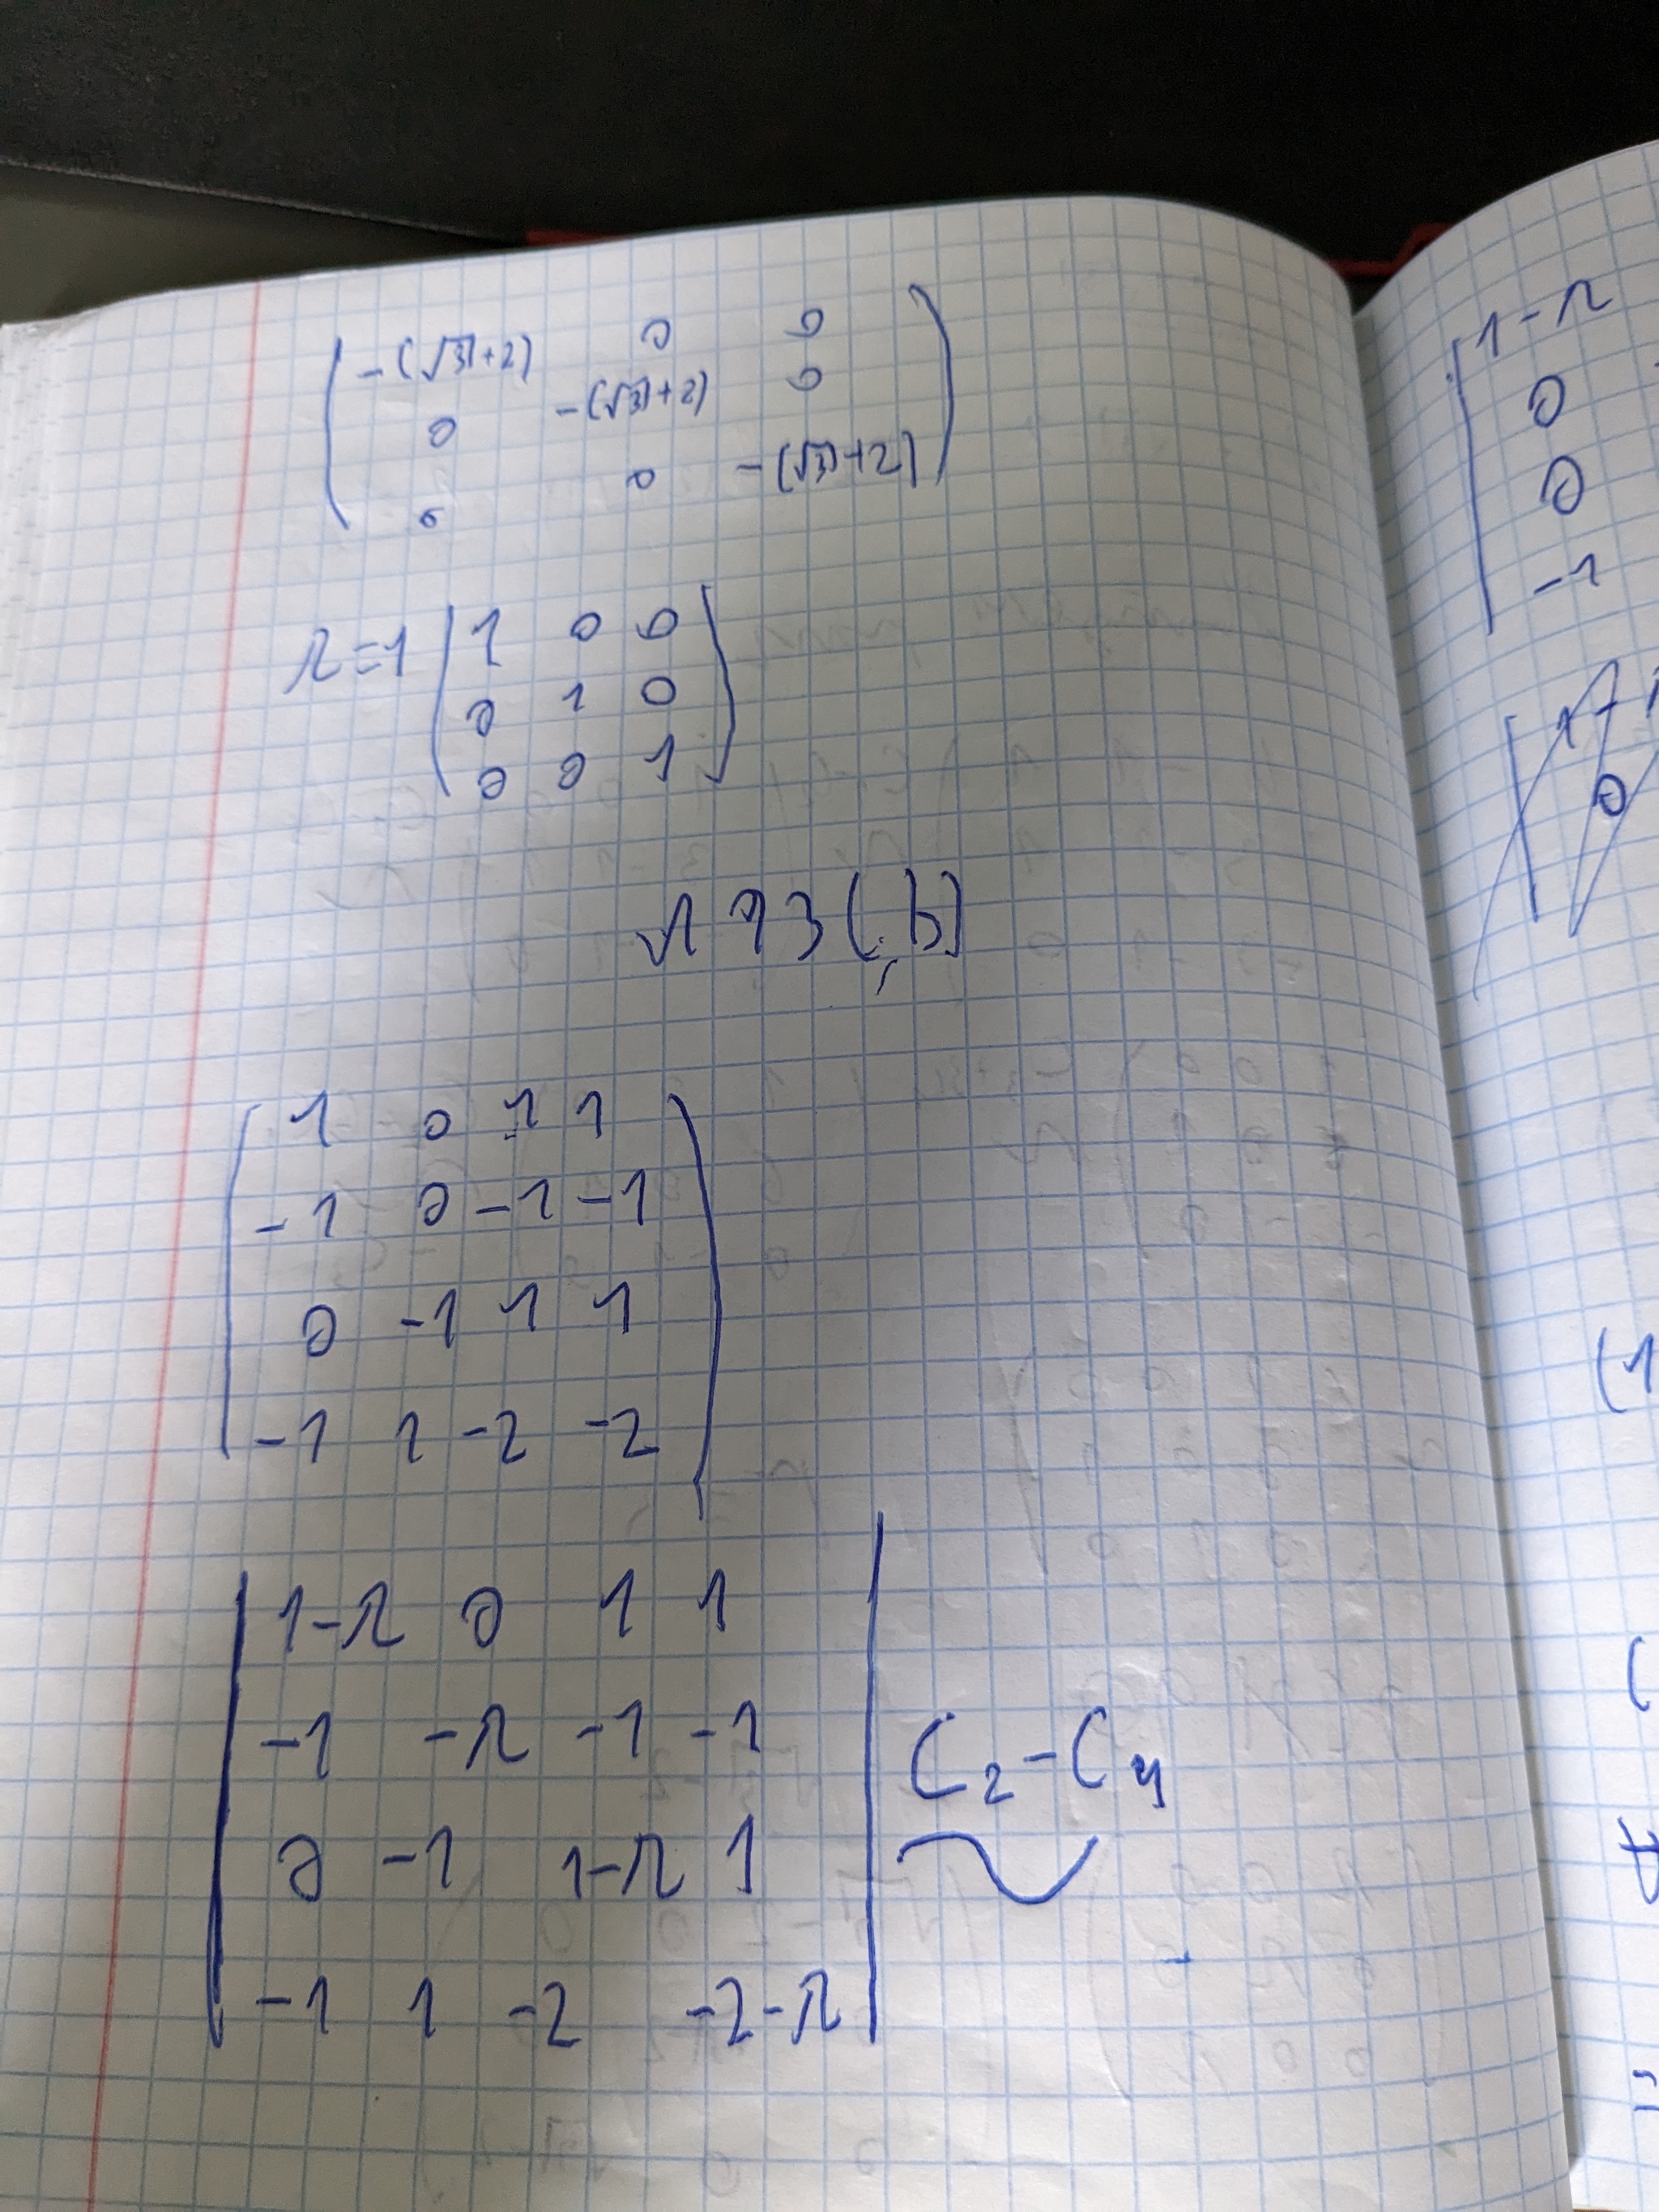 -(√3+2) 0 0
0 -(√3+2) 0
0 0 -(√3+2)
λ=1 1 0 0
0 1 0
0 0 1
(b)
1 0 1 1
-1 0 -1 -1
0 -1 1 1
-1 1 -2 -2
1-λ 0 1 1
-1 -λ -1 -1 C₂-C₄
0 -1 1-λ 1
-1 1 -2 -2-λ
1-λ
0
0
-1
0
(1